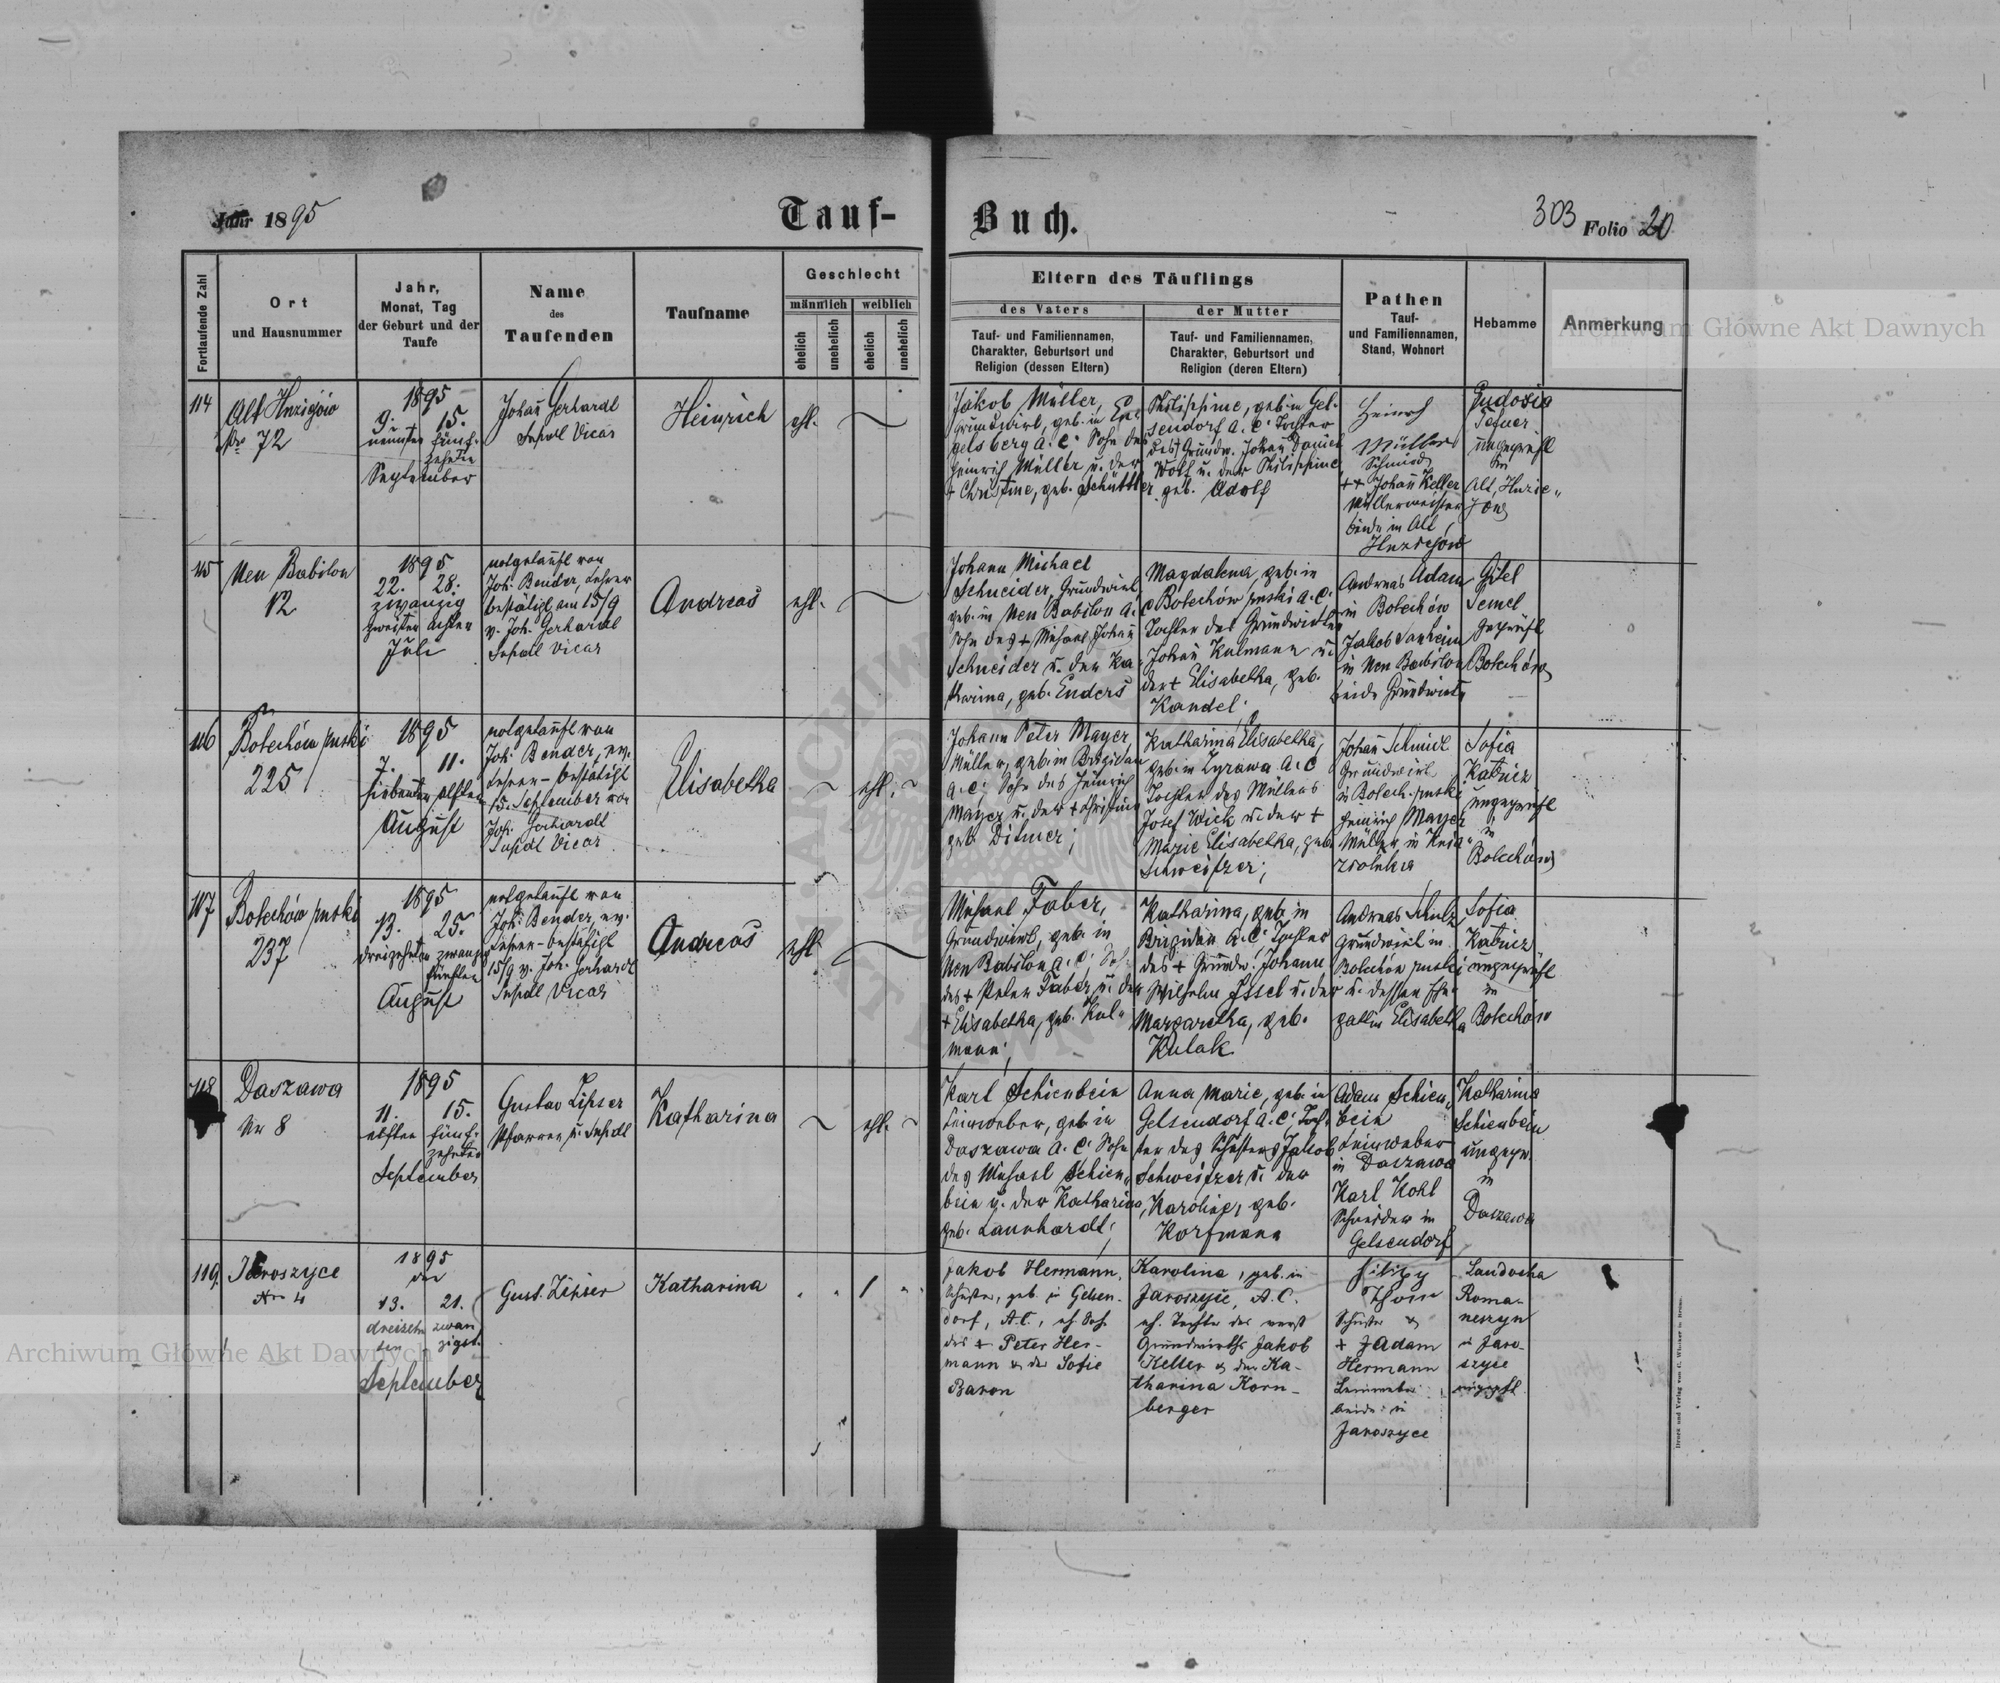 Jahr 1895
Tauf-
Buch.
303 Folio 20
Fortlaufende Zahl
Ort
und Hausnummer
Jahr,
Monat, Tag
der Geburt und der
Taufe
Name
des
Taufenden
Taufname
Geschlecht
männlich
weiblich
ehelich
unehelich
ehelich
unehelich
Eltern des Täuflings
des Vaters
Tauf- und Familiennamen,
Charakter, Geburtsort und
Religion (dessen Eltern)
der Mutter
Tauf- und Familiennamen,
Charakter, Geburtsort und
Religion (deren Eltern)
Pathen
Tauf-
und Familiennamen,
Stand, Wohnort
Hebamme
Anmerkung
Archiwum Główne Akt Dawnych
114
Alt
Nro 72
1895
9. 15.
neunten fünf-
zehnten
September
Johan̄ Gerhardt
Supdl Vicar
Heinrich
ehl.
Jakob Müller,
Grundwirt, geb. in En-
gelsberg A. C. Sohn des
Heinrich Müller u. der
+ Christine, geb. Schüttler
Philippine, geb. in Gel-
sendorf A. C. Tochter
des Grundw. Johan̄ Daniel
Wolf u. der Philippine
geb. Adolf
Heinrch
Müller
Schmied
++ Johan̄ Keller
Müllermeister
beide in Alt
Eudoxia
ungeprüft
in
115
Neu Babilon
12
1895
22. 28.
zwanzig
zweiten achten
Juli
notgetauft von
Joh. Bender, Lehrer
bestätigt am 15/9
v. Joh. Gerhardt
Supdl Vicar
Andreas
ehl.
Johann Michael
Schneider, Grundwirt
geb. in Neu Babilon A. C.
Sohn des + Michael Johan̄
Schneider u. der Ka-
tharina, geb. Enders
Magdalena, geb. in
Bolechów ruski A. C.
Tochter des Grundwirten
Johan̄ Kulmann u.
der + Elisabetha, geb.
Kandel.
Andreas Adam
in Bolechów
Jakob
in Neu Babilon
beide Grundwirte
Gitel
Semel
geprüft
Bolechów
116
Bolechów ruski
225
1895
7. 11.
siebenten elften
August
notgetauft von
Joh. Bender, ev.
Lehrer - bestätigt
15. September von
Joh. Gerhardt
Supdl Vicar
Elisabetha
ehl.
Johann Peter Mayer
Müller, geb. in Brigidau
A. C; Sohn des Heinrich
Mayer u. der + Christine
geb. Ditmer;
Katharina Elisabetha,
geb. in Zyrawa A. C
Tochter des Müllers
Josef Wick u. der +
Marie Elisabetha, geb.
Schweitzer;
Johan̄ Schmidt
Grundwirt
in Bolech. ruski
Heinrich Mayer
Müller in Knia-
Sofia
Kabicz
ungeprüft
in
Bolechów
117
Bolechów ruski
237
1895
13. 25.
dreizehnten zwanzig
fünften
August
notgetauft von
Joh. Bender, ev.
Lehrer - bestätigt
15/9 v. Joh. Gerhardt
Supdl Vicar
Andreas
ehl.
Michael Faber,
Grundwirt, geb. in
Neu Babilon A. C; Sohn
des + Peter Faber u. der
+ Elisabetha, geb. Kul-
mann;
Katharina, geb. in
Brigidau A. C; Tochter
des + Grundw. Johann
Wilhelm Issel u. der
Margaretha, geb.
Kulak
Andreas Schulz
Grundwirt in
Bolechów ruski
u. dessen Ehe-
gattin Elisabetha
Sofia
Kabicz
ungeprüft
in
Bolechów
118
Daszawa
Nr 8
1895
11. 15.
elften fünf-
zehnten
September
Gustav Lipser
Pfarrer u. Supdl
Katharina
ehl.
Karl Schienbein
Leinweber, geb. in
Daszawa A. C. Sohn
des Michael Schien-
bein u. der Katharina,
geb. Launhardt;
Anna Marie, geb. in
Gelsendorf A. C, Toch-
ter des Schusters Jakob
Schweitzer u. der
Karoline, geb.
Korfmann
Adam Schien-
bein
Leinweber
in Daszawa
Karl Kohl
Schneider in
Gelsendorf
Katharina
Schienbein
ungepr.
in
Daszawa
119.
Jaroszyce
Nro 4
1895
den
13. 21.
dreizehn zwan
ten zigst.
September
Gust. Lipser
Katharina
1
Jakob Hermann,
Schuster, geb. in Gelsen-
dorf, A.C., eh. Sohn
des + Peter Her-
mann & der Sofie
Baron
Karoline, geb. in
Jaroszyce, A. C.
eh. Tochter des verst
Grundwirths Jakob
Keller & der Ka-
tharina Korn-
berger
Filipp
Thom
Schuster &
+ Adam
Hermann
Leinweber
beide in
Jaroszyce
Roma-
in Jaro-
szyce
Druck und Verlag von C. Winiker in Brünn.
Archiwum Główne Akt Dawnych